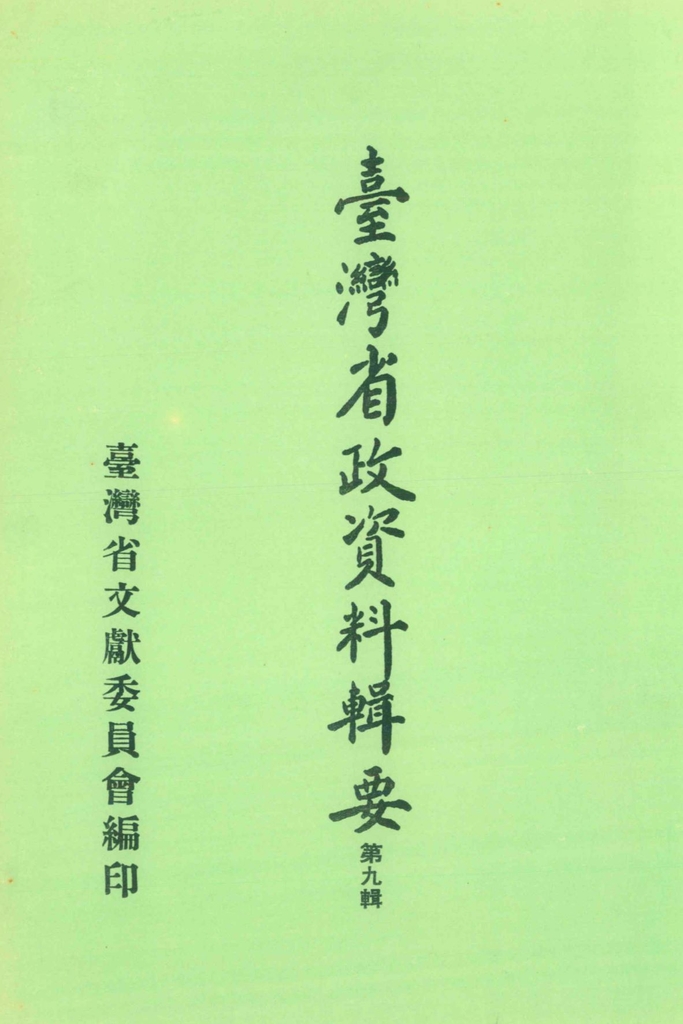 臺灣省政資料輯要
第九輯
臺灣省文獻委員會編印